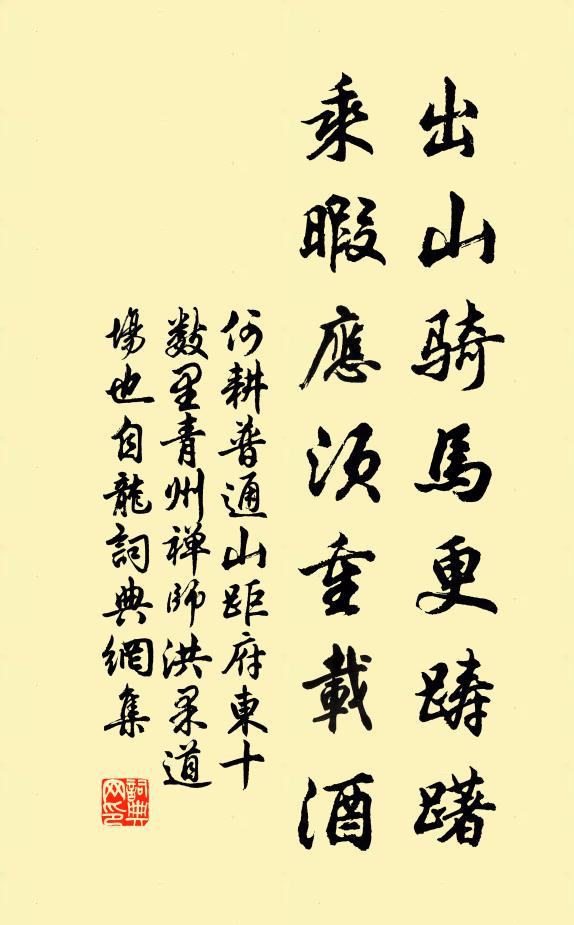 出山騎馬更踌躇
乘暇應須重載酒
何耕普通山距府東十
数里青州禅師洪柔道
場也自龍詞典網集
詞典
网印